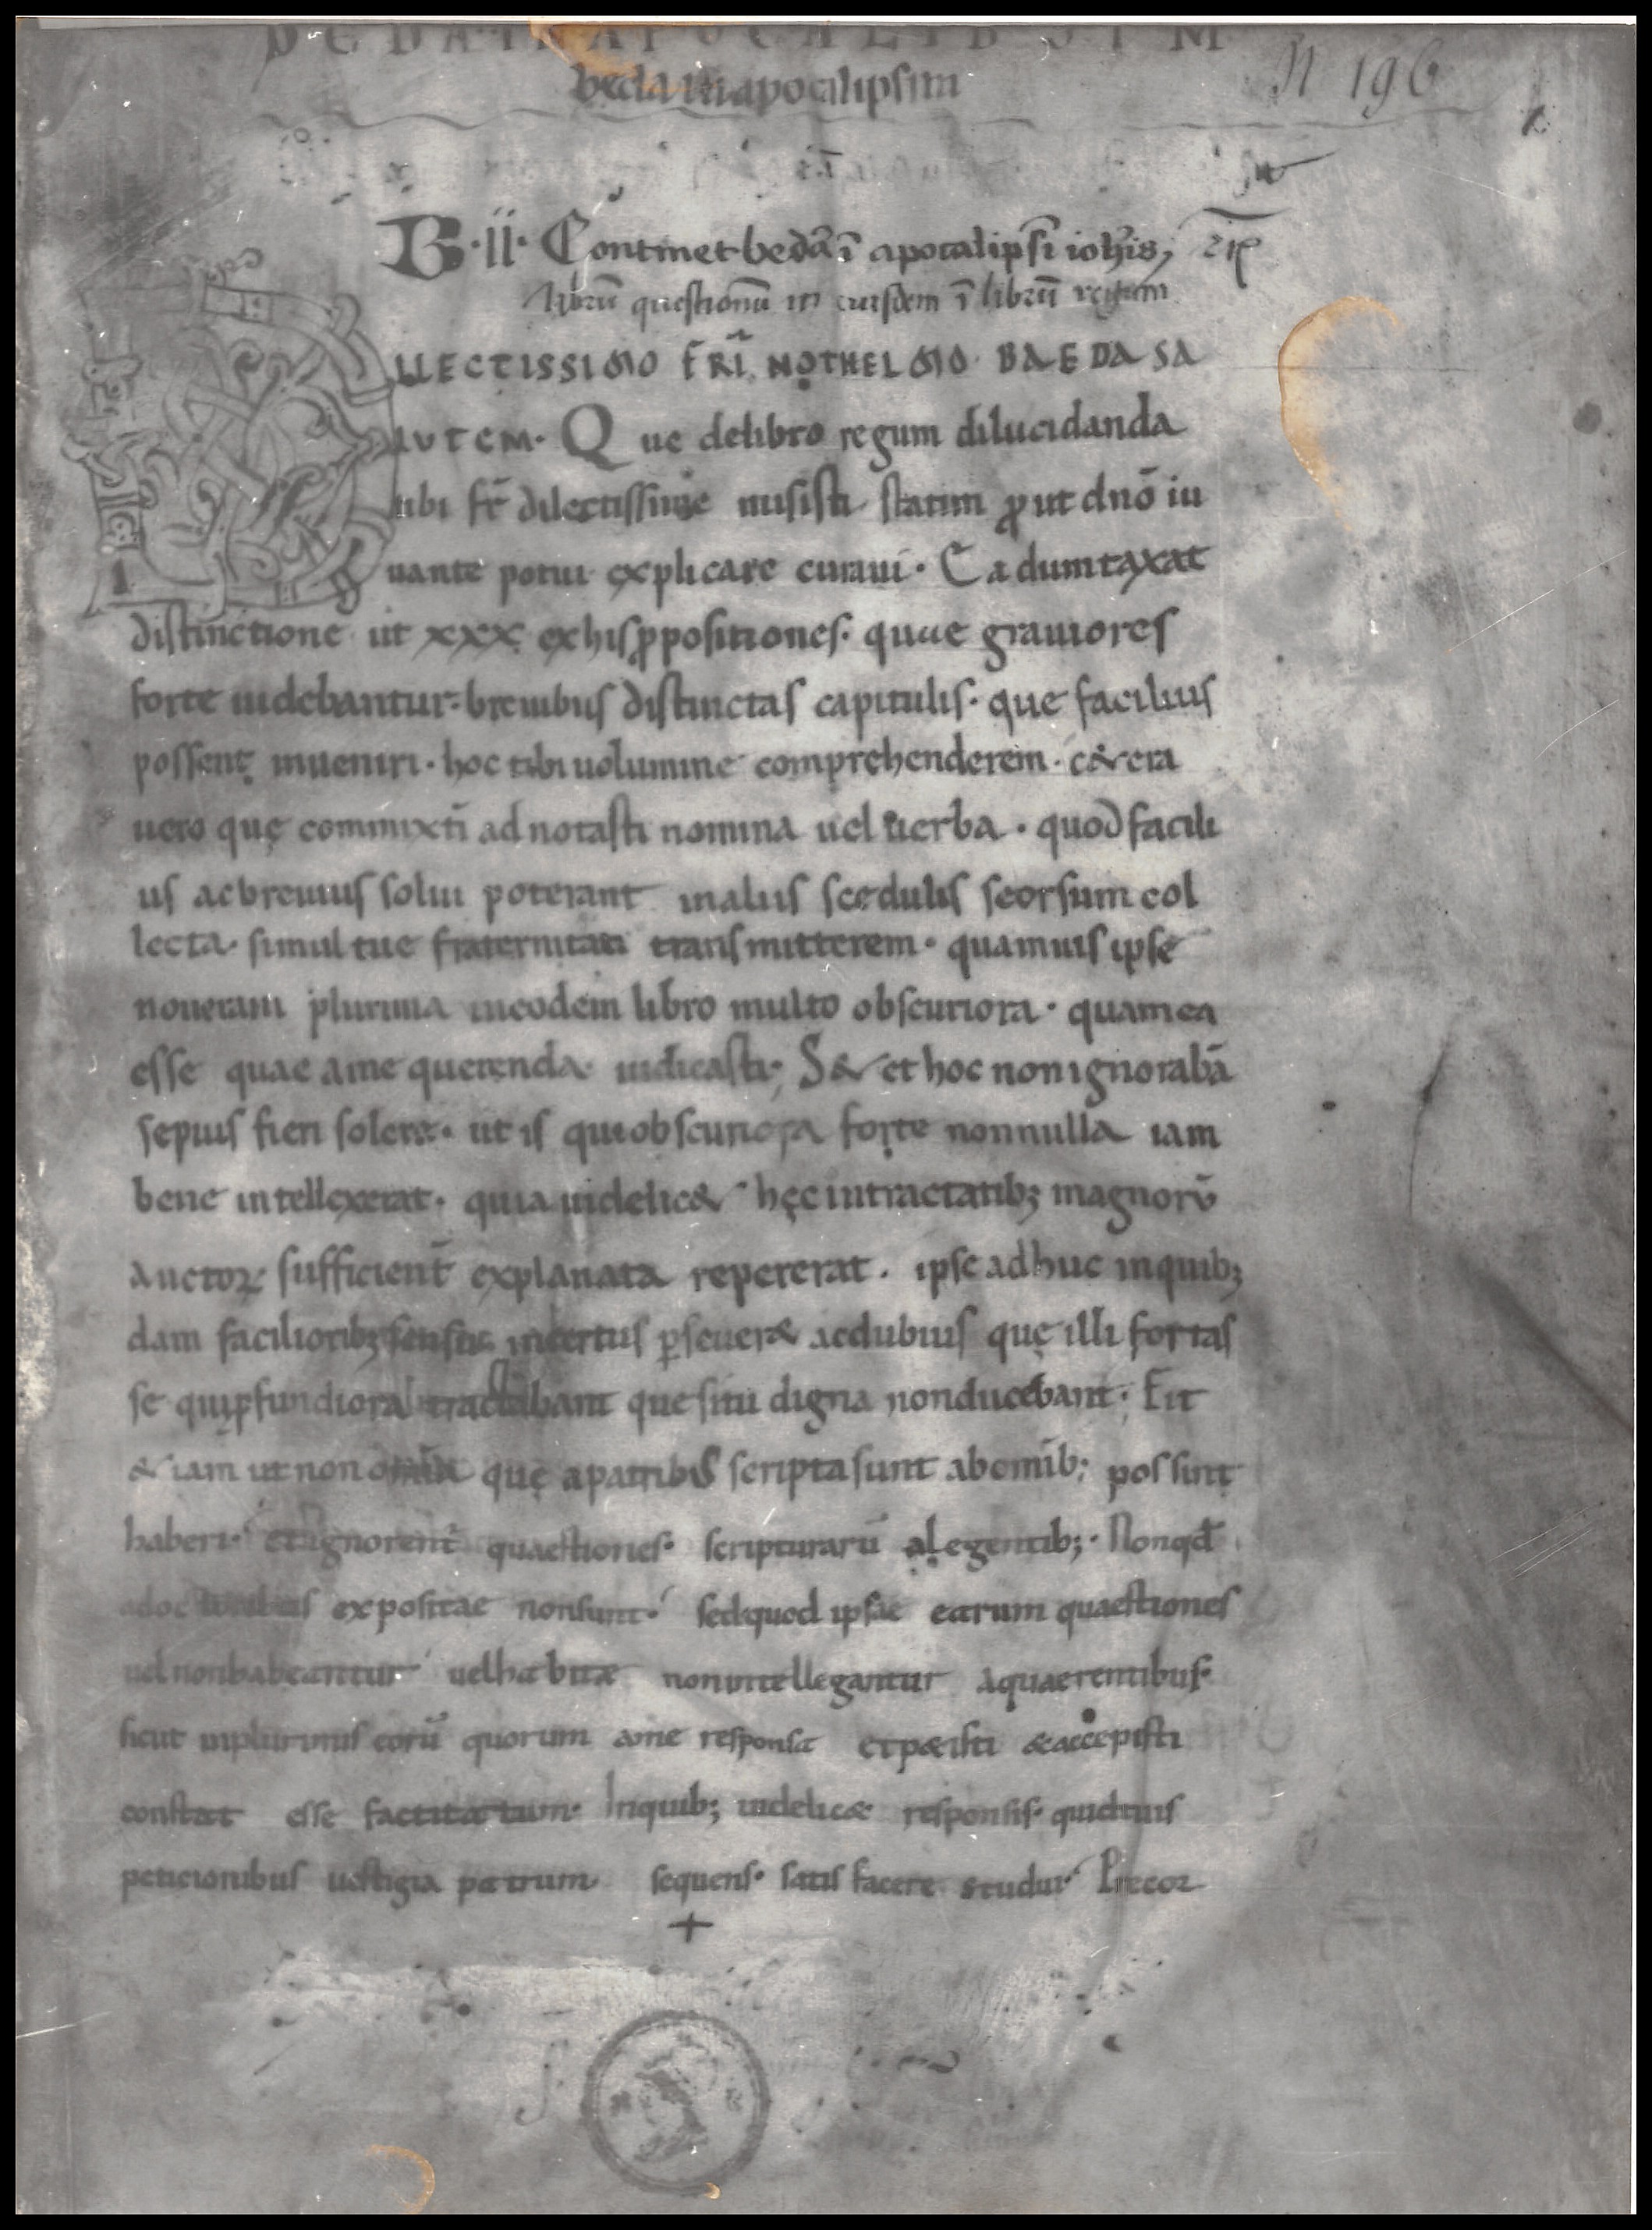 BEDA IN APOCALIBSIM
beda in apocalipsim
N 196
B · II · Continet bedā ī apocalipsī ioh̄is,
librū questionū in eiusdem ī librū regum
DILLECTISSIMO FR̄I NOTHELMO BAEDA SA
LVTEM · Que delibro regum dilucidanda
tibi fr̄ dilectissime misisti statim ꝓut dn̄o iu
uante potui explicare curaui · Ea dumtaxat
distinctione ut xxx ex his ꝓpositiones · quae grauiores
forte uidebantur · breuibus distinctas capitulis · que facilius
possent inueniri · hoc tibi uolumine comprehenderem · c&era
uero quę commixtī adnotasti nomina uel uerba · quod facili
us ac breuius solui poterant in aliis scedulis seorsum col
lecta · simul tue fraternitati transmitterem · quamuis ipse
noueram plurima in eodem libro multo obscuriora · quam ea
esse quae a me querenda indicasti; S& et hoc non ignorabā
sepius fieri soler& · ut is qui obscuriora forte nonnulla iam
bene intellexerat · quia uidelic& hęc in tractatib; magnorū
auctoꝝ sufficient̄ explanata repererat · ipse adhuc in quib;
dam faciliorib; sensus incertus ꝑseuer& ac dubius quę illi fortas
se qui ꝓfundiora tractabant quesitu digna non ducebant · Fit
&iam ut non omīa quę a patribus scripta sunt ab omīb; possint
haberi · et ignorent̄ quaestiones · scripturarū a legentib; · Non qd̄
a doctoribus expositae non sunt · sed quod ipsae earum quaestiones
uel non habeantur uel habitae non intellegantur a quaerentibus ·
sicut in plurimis eorū quorum a me responsa et petisti & accepisti
constat esse factitatum · In quib; uidelic& responsis · quid tuis
peticionibus uestigia patrum sequens · satis facere studui · Precor
+